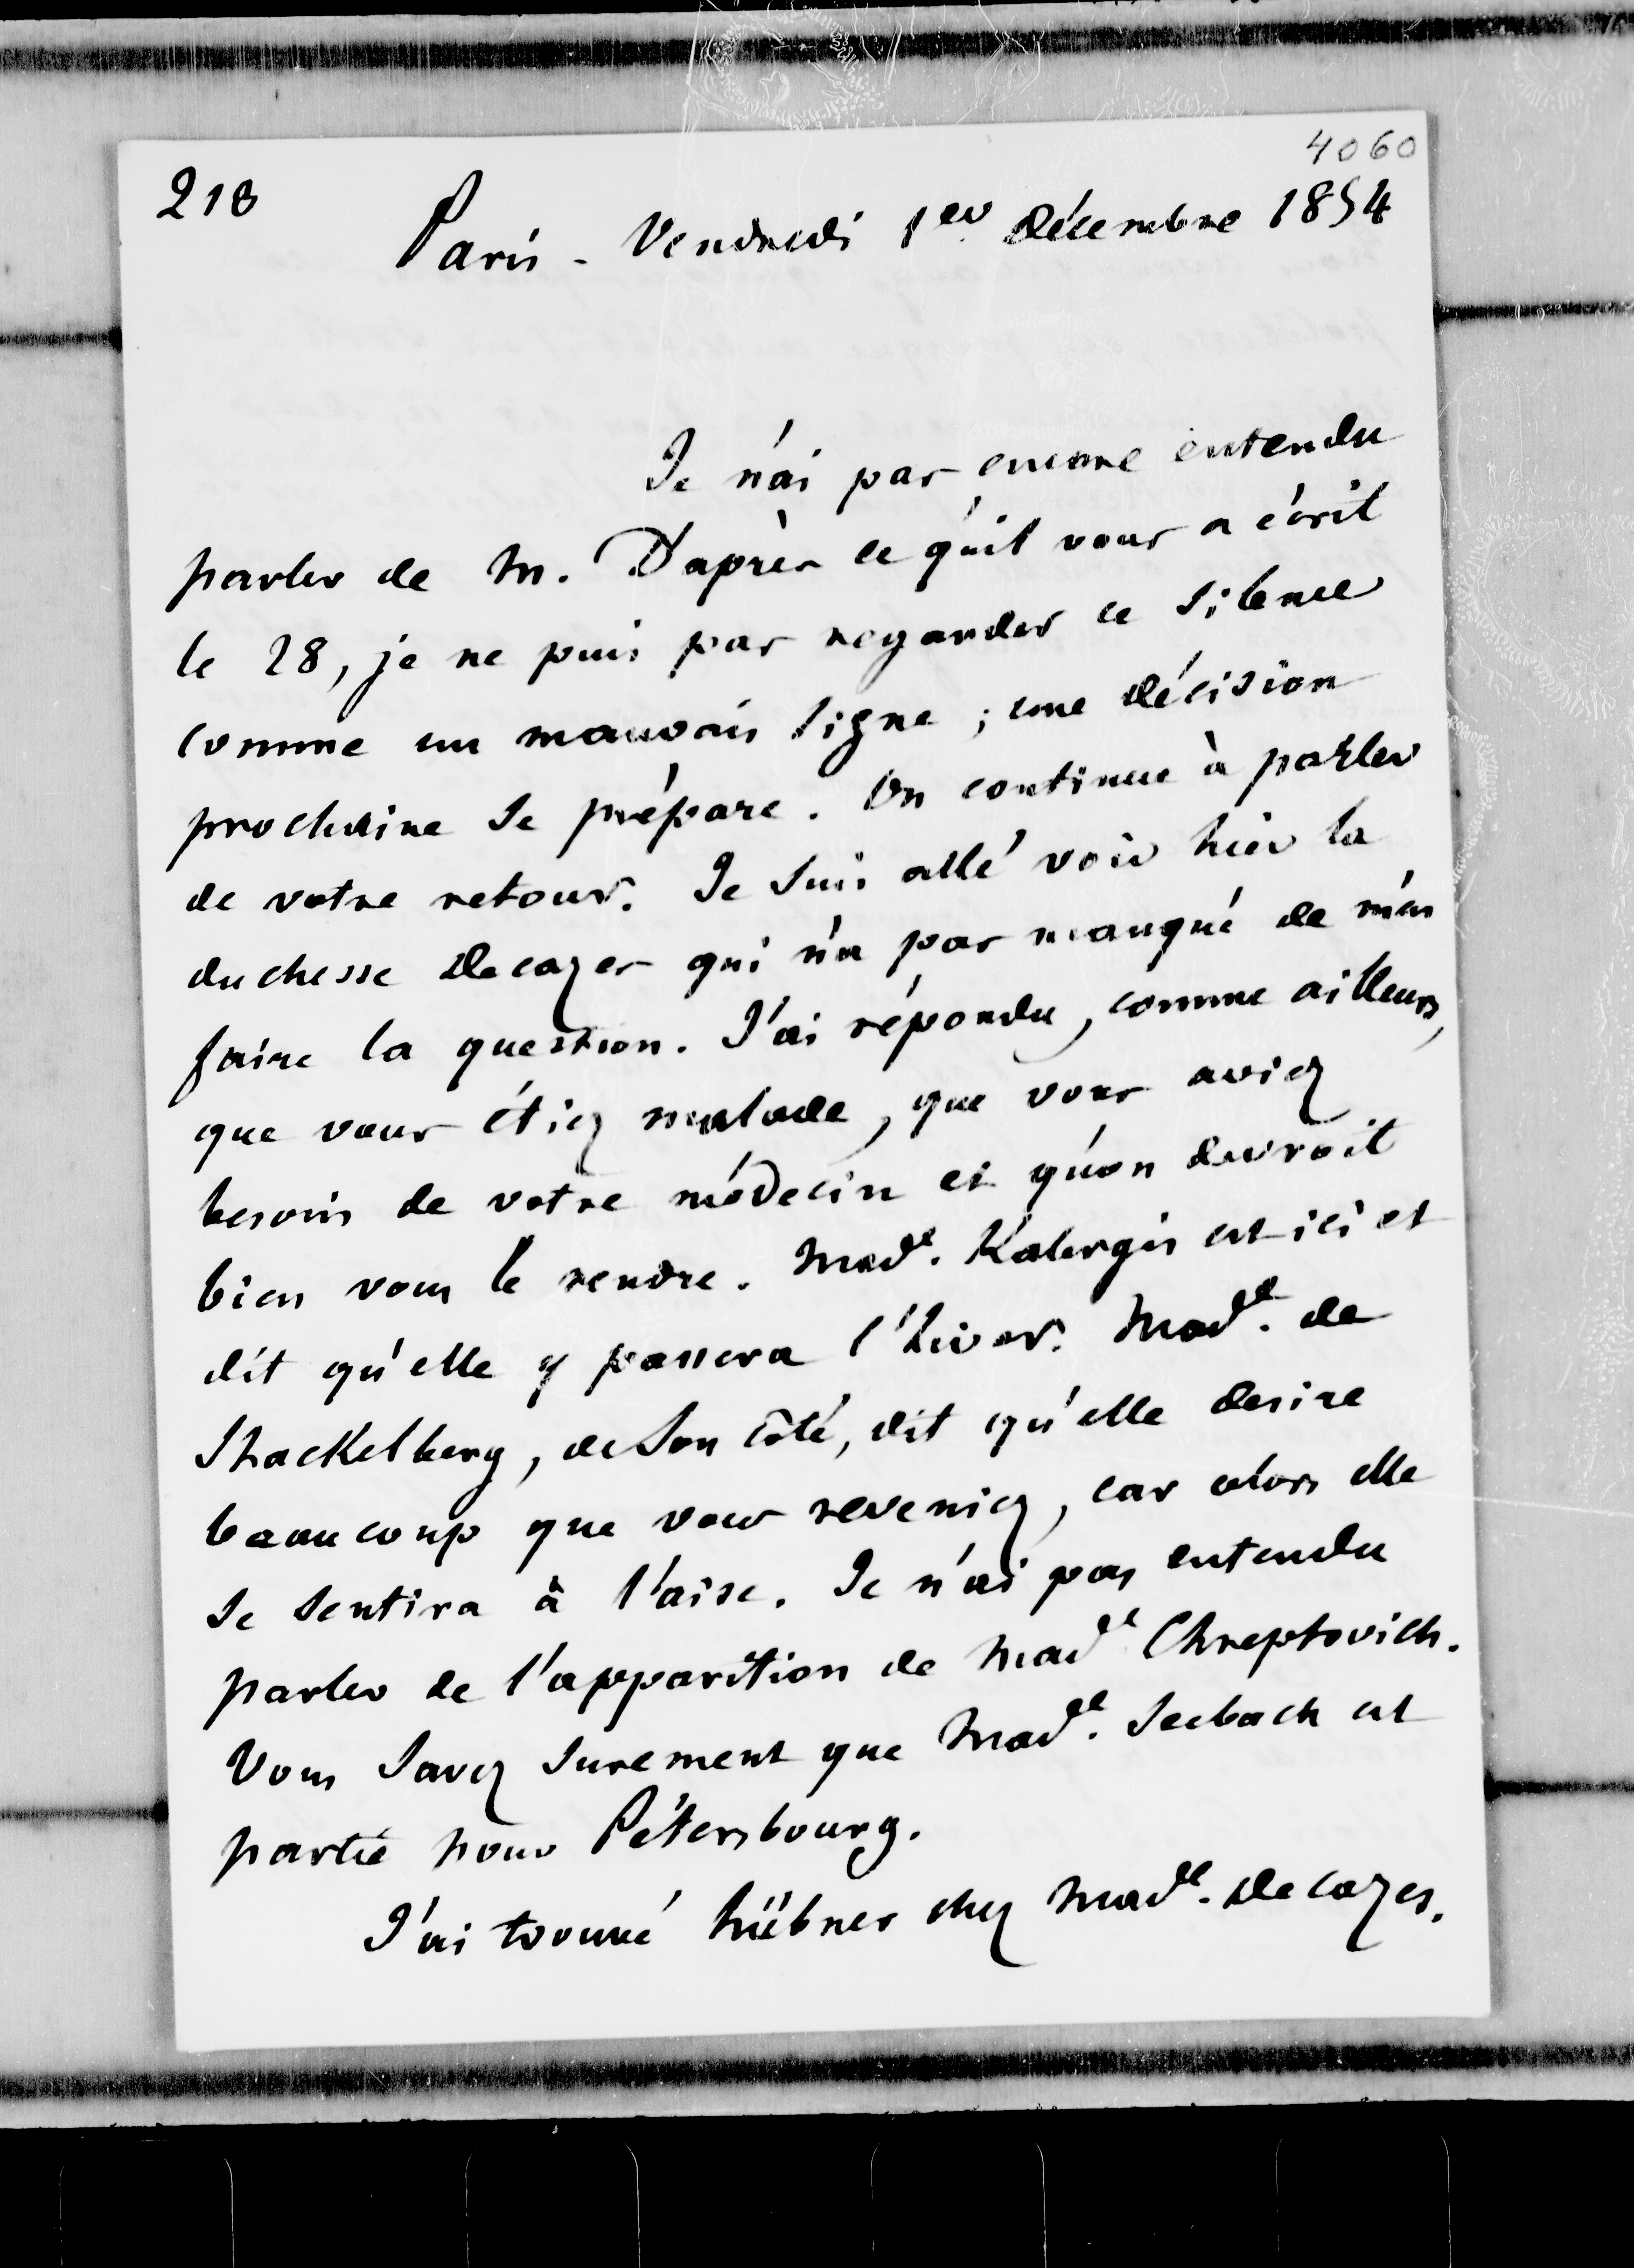 4060
218
Paris - Vendredi 1er Décembre 1854
Je n'ai pas encore entendu
parler de M. D'après ce qu'il vous a écrit
le 28, je ne puis pas regarder ce silence
comme un mauvais signe ; une décision
prochaine se prépare. On continue à parler
de votre retour. Je suis allé voir hier la
duchesse Decazes qui n'a pas manqué de m'en
faire la question. J'ai répondu, comme ailleurs,
que vous étiez malade, que vous aviez
besoin de votre médecin et qu'on devroit
bien vous le rendre. Made. Kalergis est ici et
dit qu'elle y passera l'hiver. Made. de
Stackelberg, de son côté, dit qu'elle desire
beaucoup que vous reveniez, car alors elle
se sentira à l'aise. Je n'ai pas entendu
parler de l'apparition de Made Chreptovich.
Vous savez surement que Made. Seebach est
partie pour Pétersbourg.
J'ai trouvé hübner chez Made. Decazes.